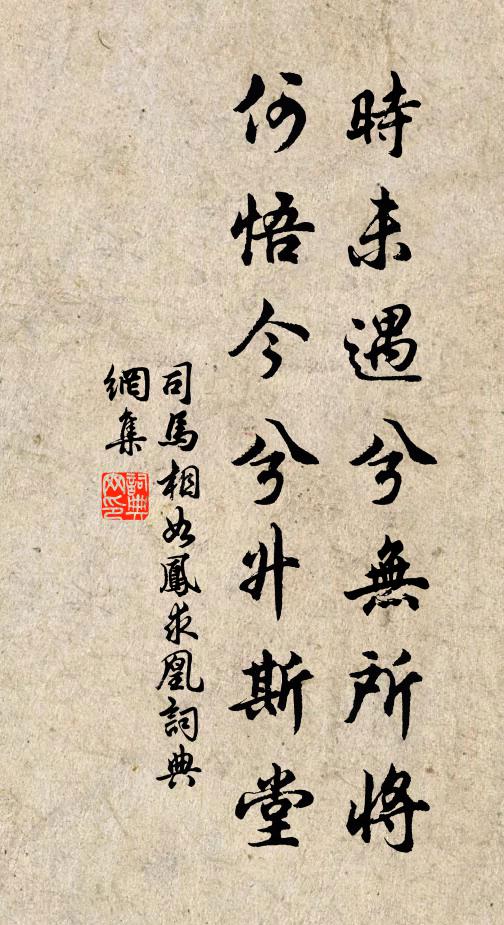 時未遇兮無所將
何悟今兮升斯堂
司馬相如鳳求凰詞典
網集
詞典
網印